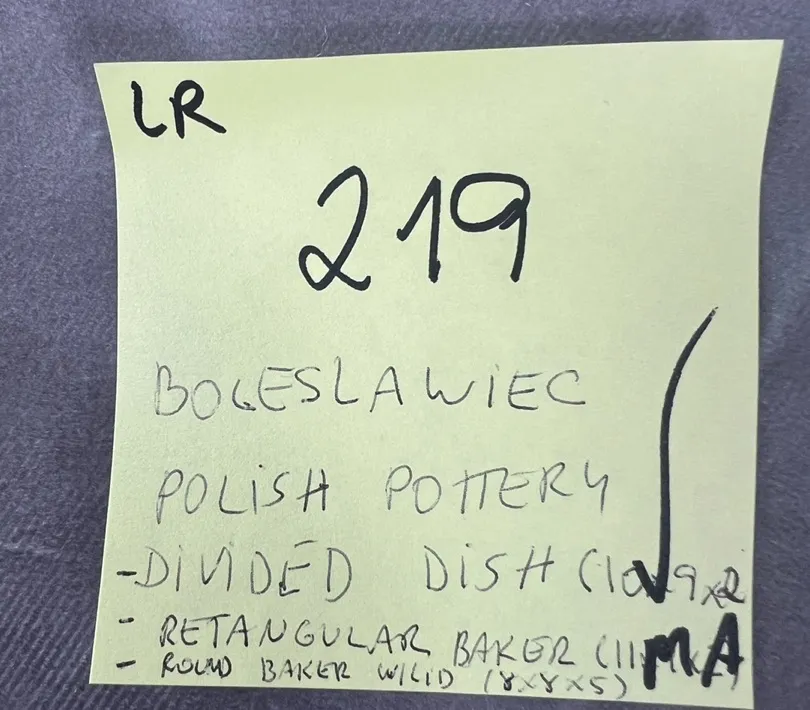 LR
219
BOLESLAWIEC
POLISH POTTERY
-DIVIDED DISH (10x9x2
- RETANGULAR BAKER (11
MA
- ROUND BAKER W/LID (8x8x5)